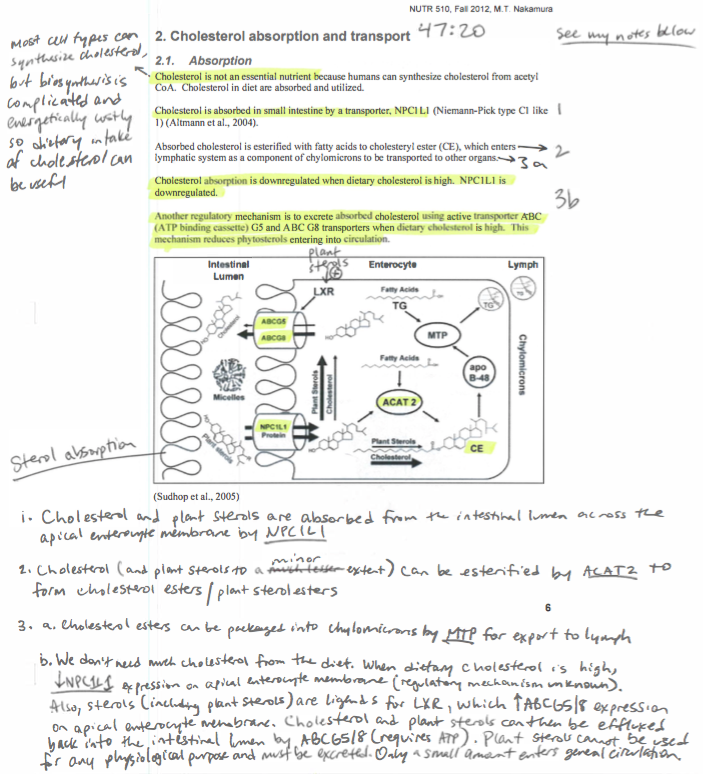 NUTR 510, Fall 2012, M.T. Nakamura
2. Cholesterol absorption and transport 47:20
see my notes below
Most cell types can
synthesize cholesterol,
but biosynthesis is
complicated and
energetically costly
so dietary intake
of cholesterol can
be useful
2.1. Absorption
Cholesterol is not an essential nutrient because humans can synthesize cholesterol from acetyl
CoA. Cholesterol in diet are absorbed and utilized.
Cholesterol is absorbed in small intestine by a transporter, NPC1L1 (Niemann-Pick type C1 like 1
1) (Altmann et al., 2004).
Absorbed cholesterol is esterified with fatty acids to cholesteryl ester (CE), which enters → 2
lymphatic system as a component of chylomicrons to be transported to other organs. → 3a
Cholesterol absorption is downregulated when dietary cholesterol is high. NPC1L1 is
downregulated.
3b
Another regulatory mechanism is to excrete absorbed cholesterol using active transporter ABC
(ATP binding cassette) G5 and ABC G8 transporters when dietary cholesterol is high. This
mechanism reduces phytosterols entering into circulation.
plant
sterols
+
Intestinal
Lumen
Enterocyte
Lymph
LXR
Fatty Acids
TG
TG
TG
ABCG5
ABCG8
Cholesterol
MTP
Chylomicrons
Fatty Acids
apo
B-48
Micelles
Plant Sterols
Cholesterol
ACAT 2
NPC1L1
Protein
Plant sterols
Plant Sterols
Cholesterol
CE
HO
HO
HO
HO
Sterol absorption
(Sudhop et al., 2005)
1. Cholesterol and plant sterols are absorbed from the intestinal lumen across the
apical enterocyte membrane by NPC1L1
2. Cholesterol (and plant sterols to a much lesser minor extent) can be esterified by ACAT2 to
form cholesterol esters / plant sterol esters
6
3. a. Cholesterol esters can be packaged into chylomicrons by MTP for export to lymph
b. We don't need much cholesterol from the diet. When dietary cholesterol is high,
↓NPC1L1 expression on apical enterocyte membrane (regulatory mechanism unknown).
Also, sterols (including plant sterols) are ligands for LXR, which ↑ABCG5/8 expression
on apical enterocyte membrane. Cholesterol and plant sterols can then be effluxed
back into the intestinal lumen by ABCG5/8 (requires ATP). Plant sterols cannot be used
for any physiological purpose and must be excreted. Only a small amount enters general circulation